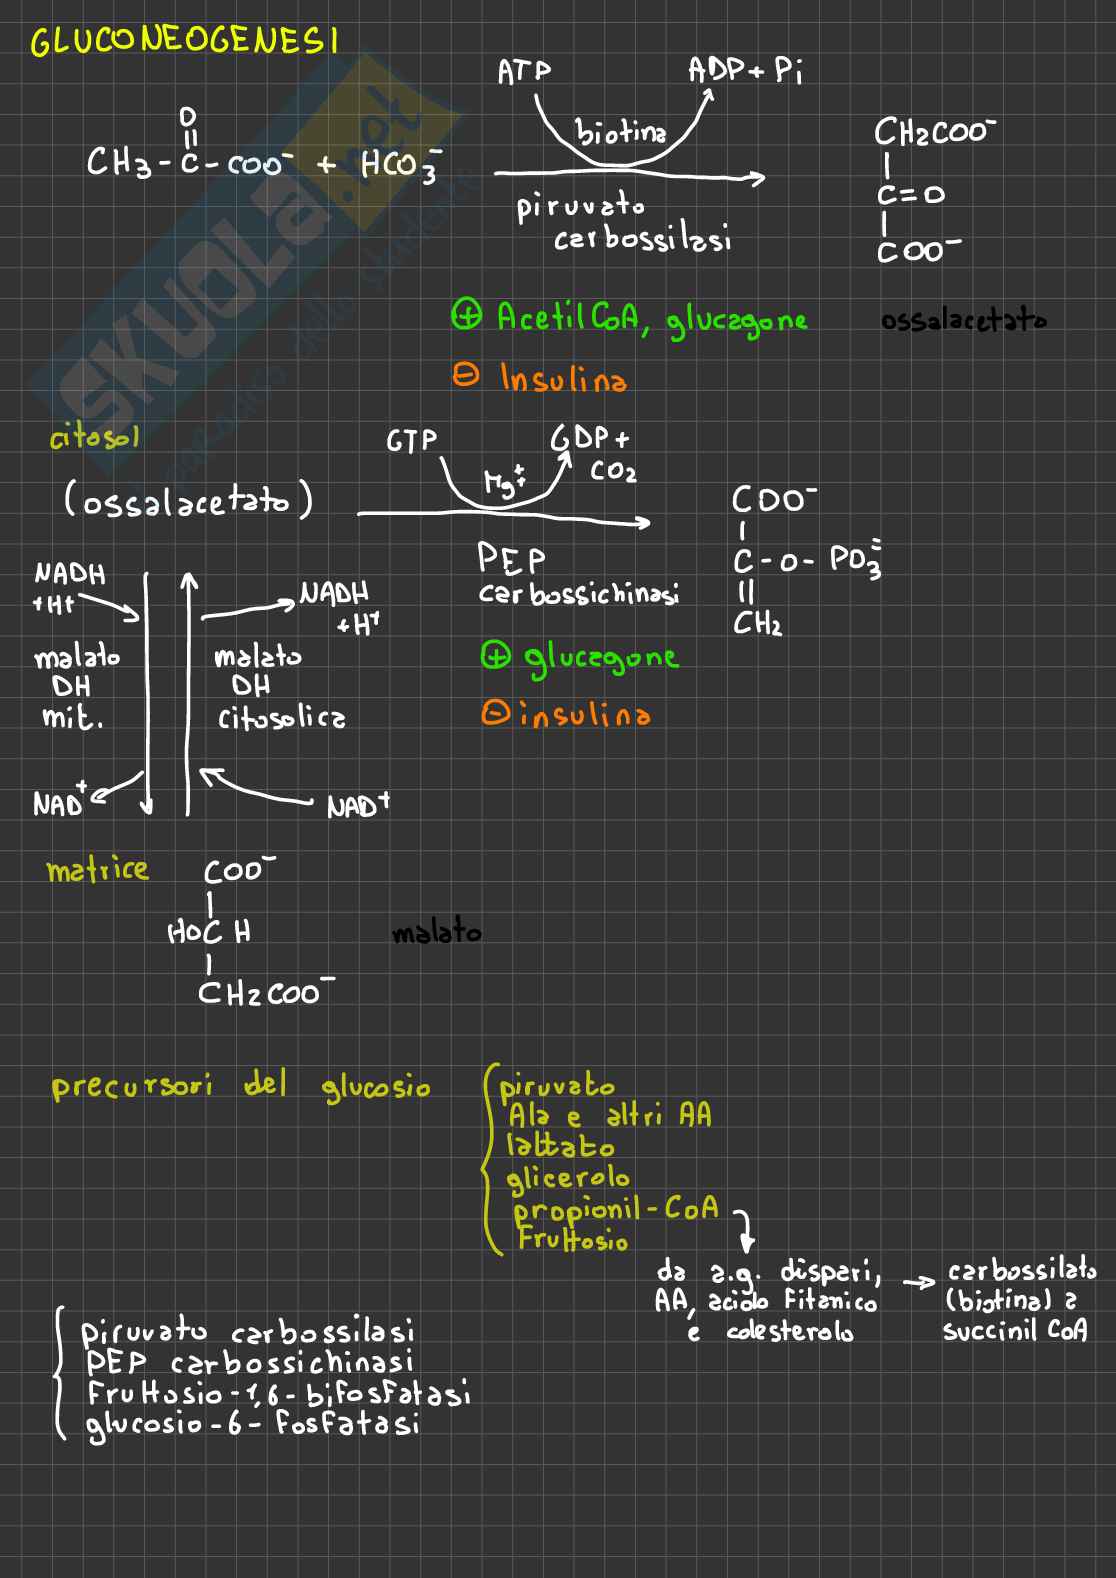 GLUCONEOGENESI
ATP ADP + Pi
biotina
O
CH3 - C - COO⁻ + HCO3⁻
piruvato
carbossilasi
CH2COO⁻
C=O
COO⁻
⊕ Acetil CoA, glucagone
ossalacetato
⊖ Insulina
citosol
GTP GDP +
CO2
Mg++
(ossalacetato)
PEP
carbossichinasi
COO⁻
C - O - PO3=
CH2
NADH
+H+
NADH
+H+
⊕ glucagone
⊖ insulina
malato
DH
mit.
malato
DH
citosolica
NAD+
NAD+
matrice
COO⁻
HOCH
CH2COO⁻
malato
precursori del glucosio
piruvato
Ala e altri AA
lattato
glicerolo
propionil-CoA
Fruttosio
da a.g. dispari,
AA, acido Fitanico
e colesterolo
→ carbossilato
(biotina) a
succinil CoA
piruvato carbossilasi
PEP carbossichinasi
Fruttosio-1,6-bifosfatasi
glucosio-6-fosfatasi
SKUOLA.net